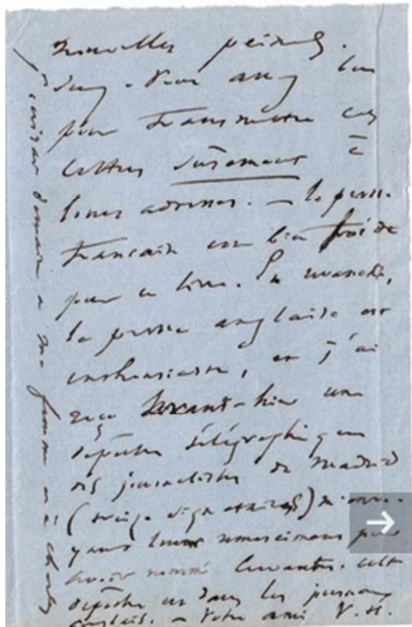 nouvelles
pour transmettre ces
lettres sûrement à
leurs adresses. — la presse
française est bien froide
pour ce livre. En revanche,
la presse anglaise est
enthousiaste, et j'ai
reçu avant-hier une
dépêche télégraphique
des journalistes de Madrid
(treize signataires) m'envo-
yant leurs remerciments pour
avoir nommé Cervantes. cette
dépêche est dans les journaux
anglais. — Votre ami V. H.